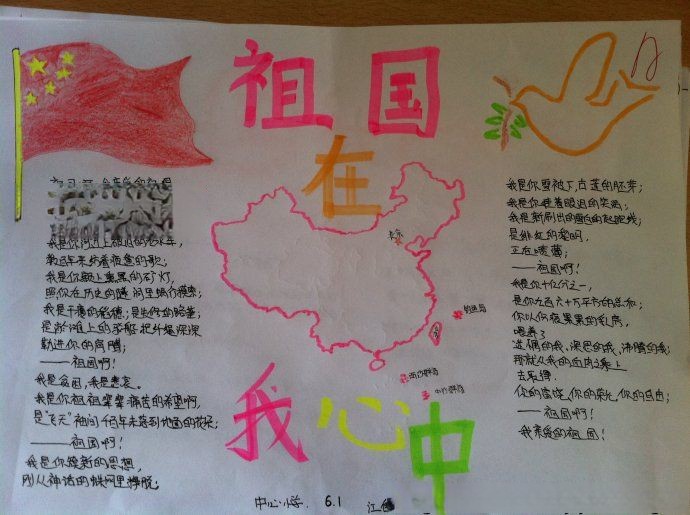 祖国
在
我心中
我是你河边上破旧的老水车,
数百年来纺着疲惫的歌;
我是你额上熏黑的矿灯,
照你在历史的隧洞里蜗行摸索;
我是干瘪的稻穗;是失修的路基;
是淤滩上的驳船把纤绳深深
勒进你的肩膊;
——祖国啊!
我是贫困,我是悲哀。
我是你祖祖辈辈痛苦的希望啊,
是"飞天"袖间千百年未落到地面的花朵;
——祖国啊!
我是你簇新的理想,
刚从神话的蛛网里挣脱;
我是你雪被下古莲的胚芽;
我是你挂着眼泪的笑涡;
我是新刷出的雪白的起跑线;
是绯红的黎明,
正在喷薄;
——祖国啊!
我是你十亿分之一,
是你九百六十万平方的总和;
你以伤痕累累的乳房,
喂养了
迷惘的我、深思的我、沸腾的我;
那就从我的血肉之躯上
去取得
你的富饶、你的荣光、你的自由;
——祖国啊!
我亲爱的祖国!
北京
钓鱼岛
中心小学. 6.1 江